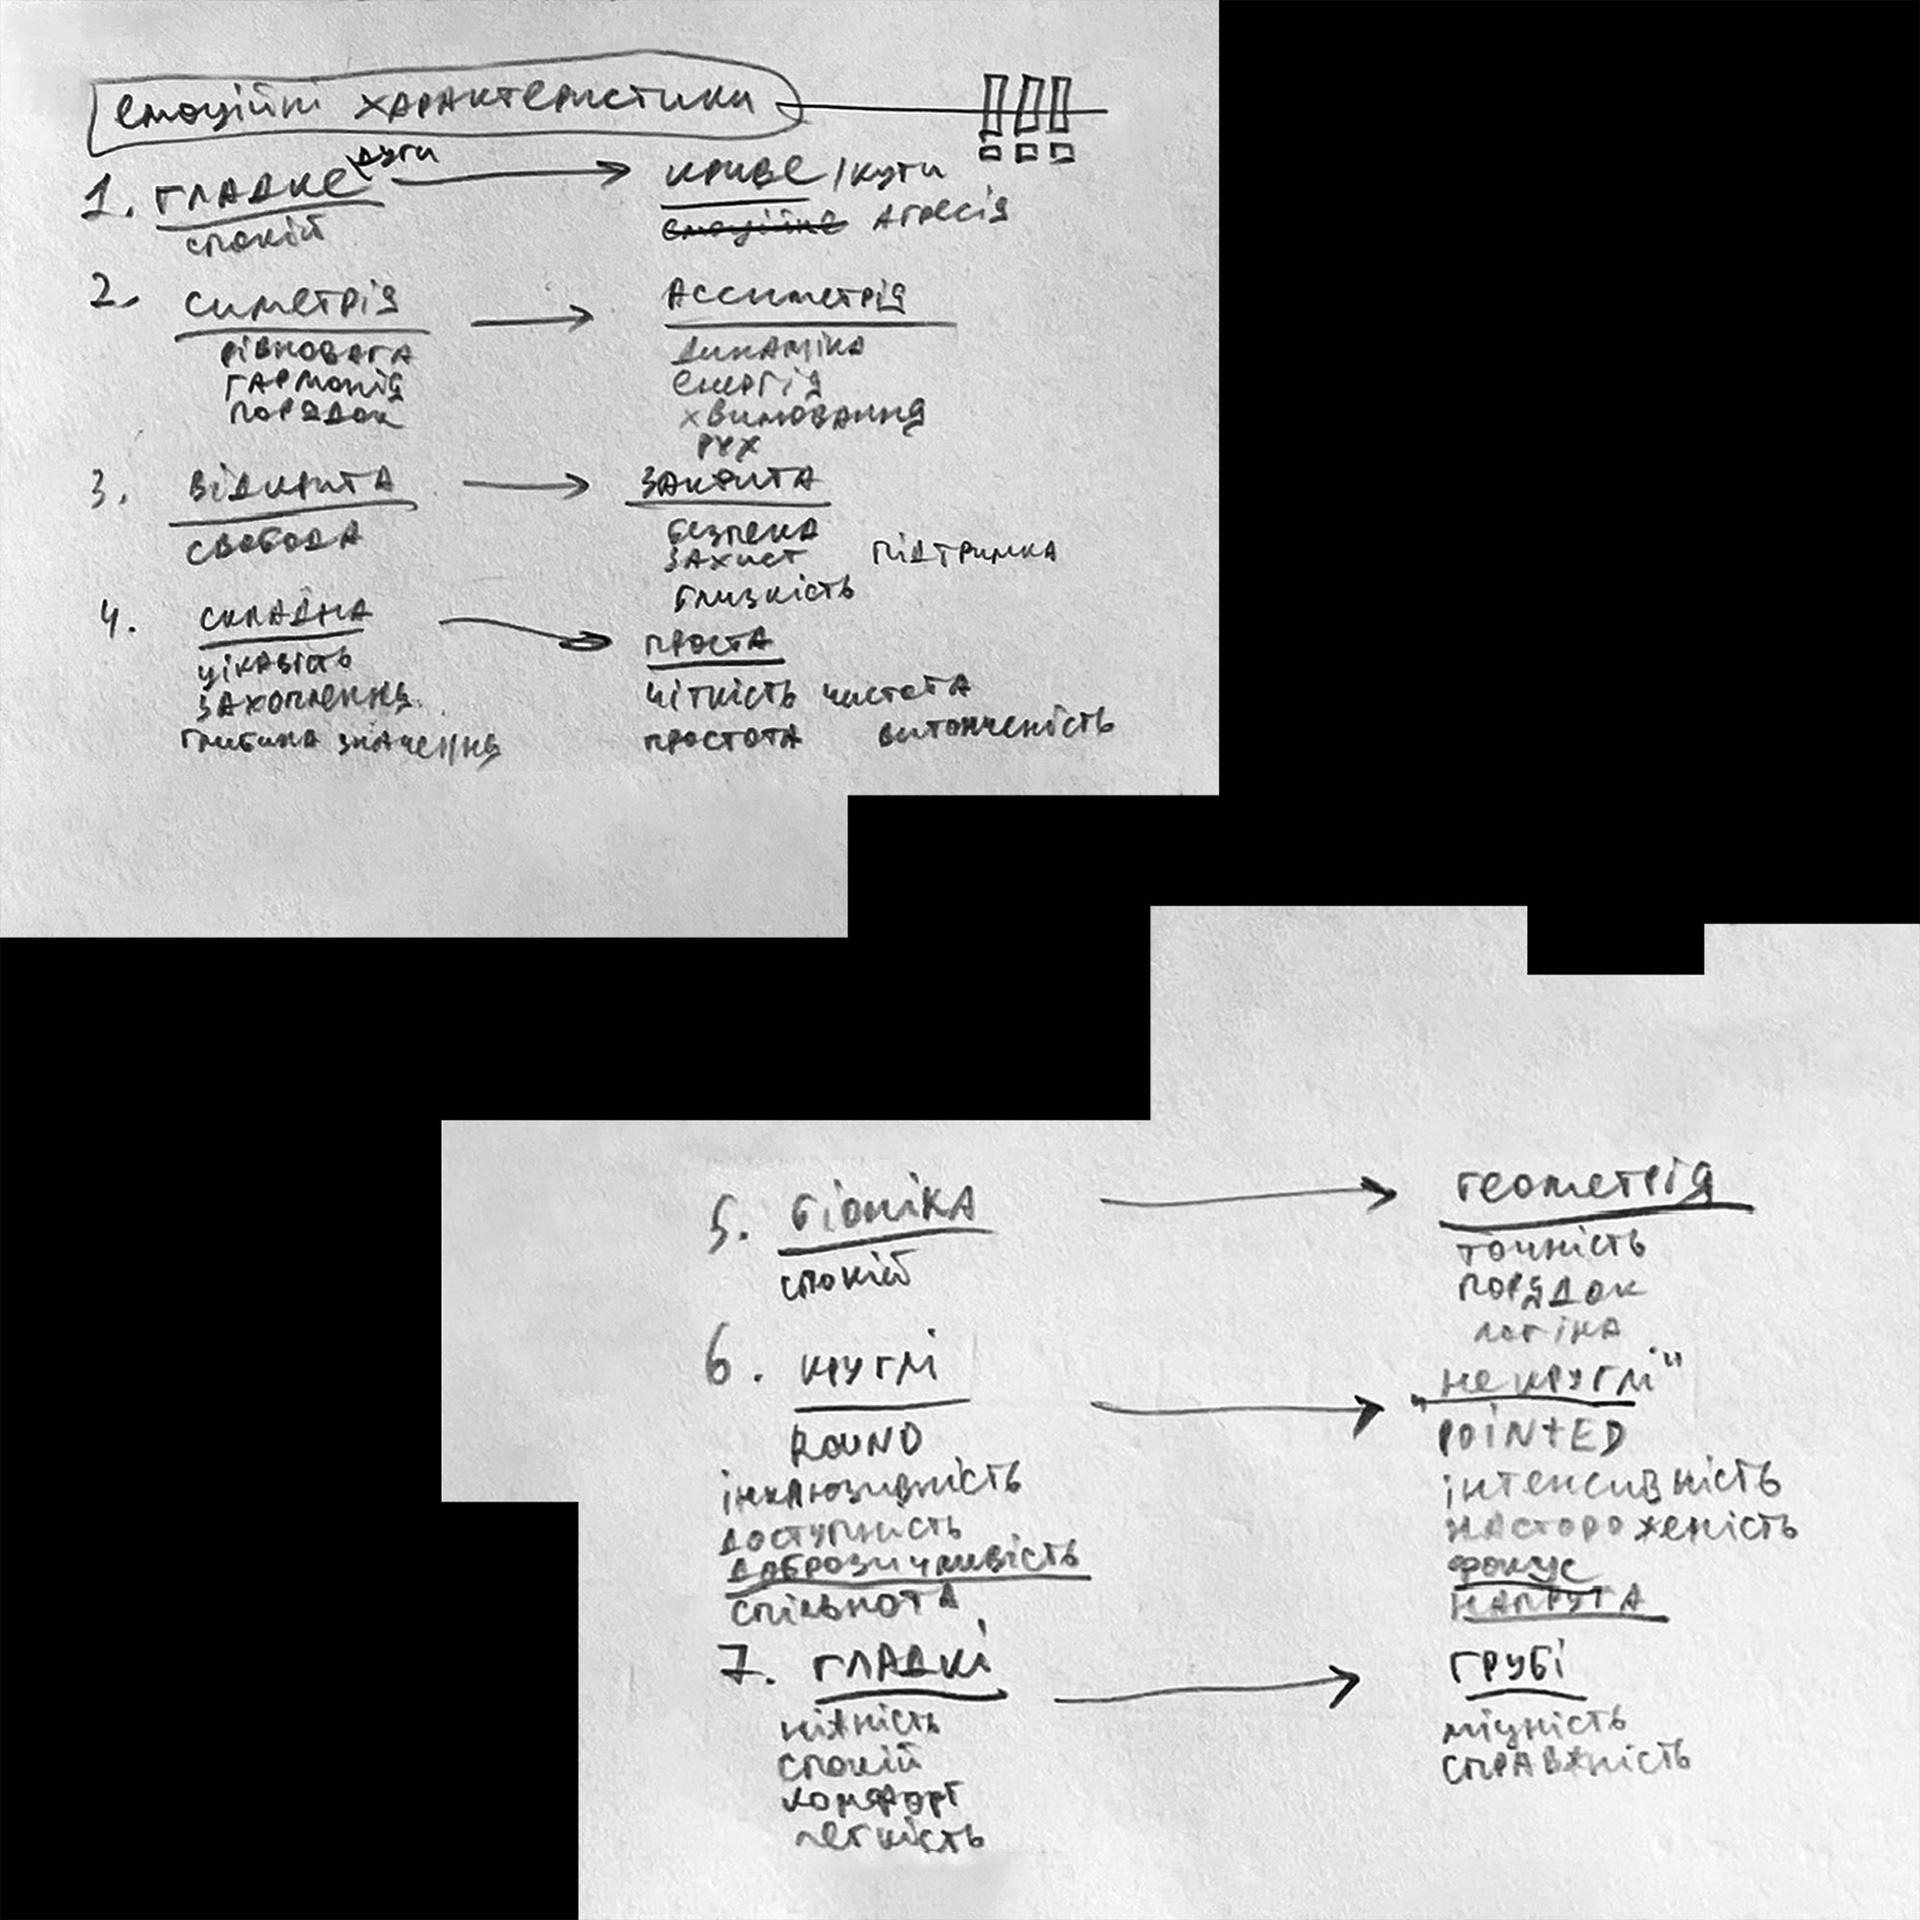 емоційні характеристики !!!
1. гладке \дуги → криве / кути
спокій ~~емоційне~~ агресія
2. симетрія → ассиметрія
рівновага динаміка
гармонія енергія
порядок хвилювання
рух
3. відкрита → закрита
свобода безпека
захист підтримка
близкість
4. складна → проста
цікавість чіткість чистота
захоплення простота витонченість
глибина значення
5. біоніка → геометрія
спокій точність
порядок
логіка
6. круглі → „не круглі"
ROUND POINTED
інклюзивність інтенсивність
доступність настороженість
доброзичливість фокус
спільнота напруга
7. гладкі → грубі
ніжність міцність
спокій справжність
комфорт
легкість